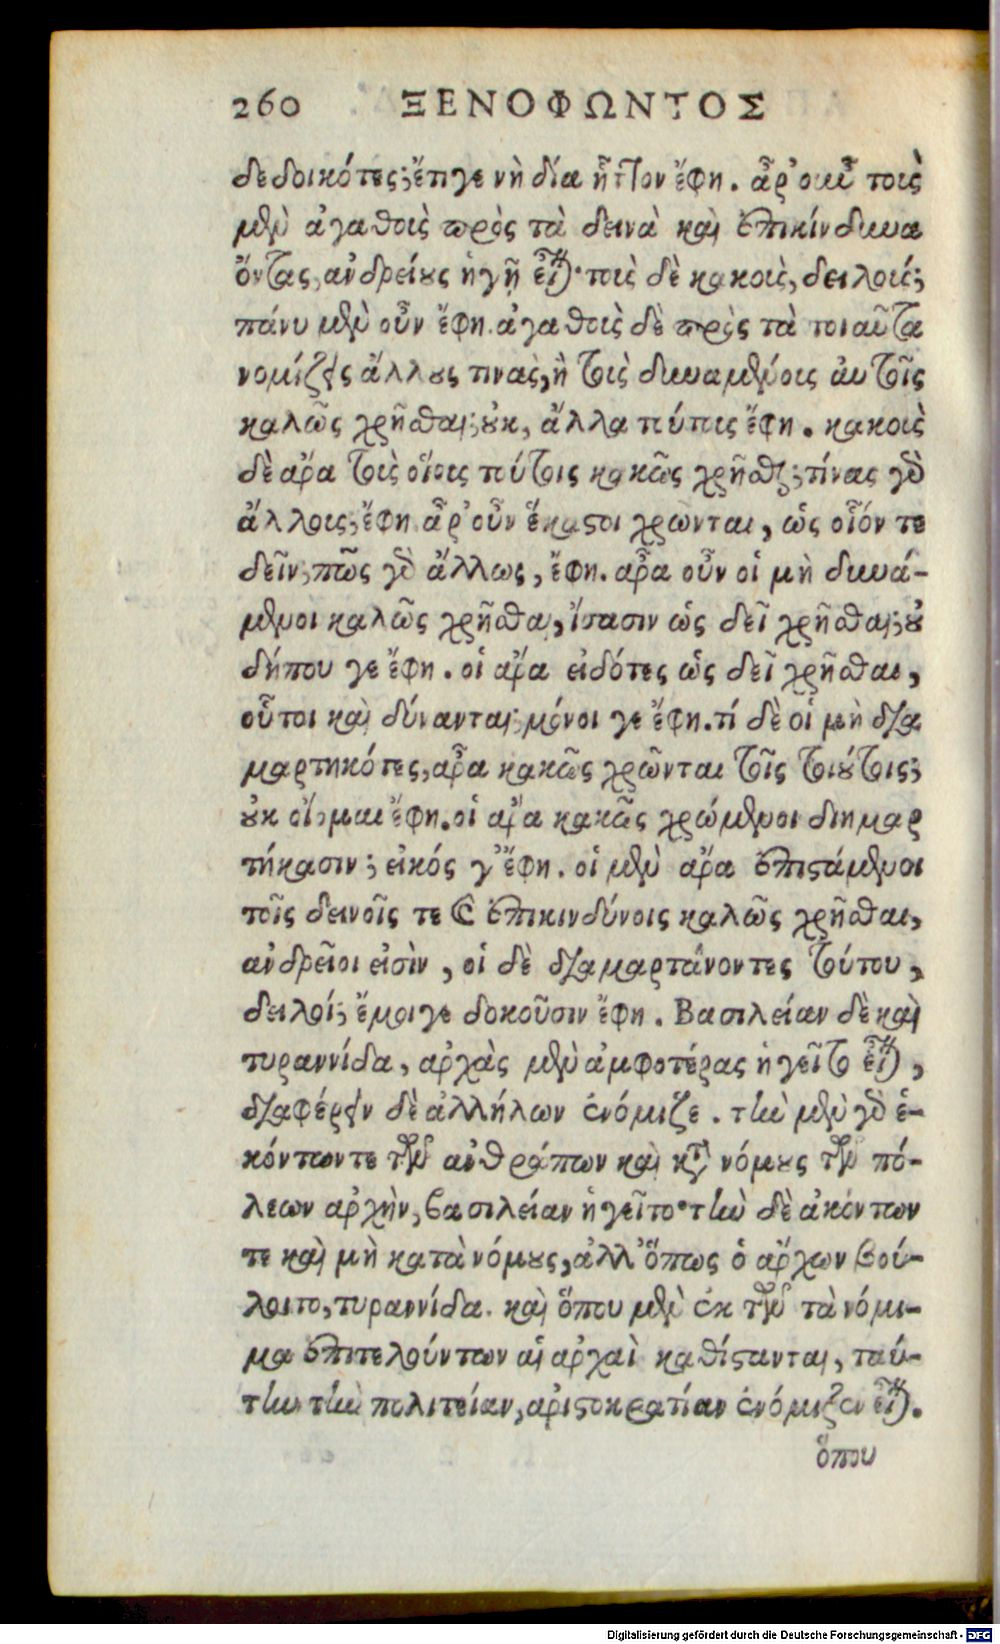 260 ΞΕΝΟΦΩΝΤΟΣ
δεδοικότες; ἔτι γε νὴ δία ἧττον ἔφη. ἆρ’ οὖν τοὺς
μὲν ἀγαθοὺς πρὸς τὰ δεινὰ καὶ ἐπικίνδυνα
ὄντας, ἀνδρείους ἡγῇ εἶναι· τοὺς δὲ κακοὺς, δειλούς;
πάνυ μὲν οὖν ἔφη. ἀγαθοὺς δὲ πρὸς τὰ τοιαῦτα
νομίζεις ἄλλους τινὰς, ἢ τοὺς δυναμένους αὐτοῖς
καλῶς χρῆσθαι; οὐκ, ἀλλὰ τούτους ἔφη. κακοὺς
δὲ ἄρα τοὺς οἵους τούτοις κακῶς χρῆσθαι; τίνας γὰρ
ἄλλους; ἔφη ἆρ’ οὖν ἕκαστοι χρῶνται, ὡς οἷόν τε
δεῖν; πῶς γὰρ ἄλλως, ἔφη. ἆρα οὖν οἱ μὴ δυνά-
μενοι καλῶς χρῆσθαι, ἴσασιν ὡς δεῖ χρῆσθαι; οὐ
δήπου γε ἔφη. οἱ ἄρα εἰδότες ὡς δεῖ χρῆσθαι,
οὗτοι καὶ δύνανται; μόνοι γε ἔφη. τί δὲ οἱ μὴ δια
μαρτηκότες, ἆρα κακῶς χρῶνται τοῖς τοιούτοις;
οὐκ οἴομαι ἔφη. οἱ ἄρα κακῶς χρώμενοι διημαρ
τήκασιν; εἰκός γ’ ἔφη. οἱ μὲν ἄρα ἐπιστάμενοι
τοῖς δεινοῖς τε καὶ ἐπικινδύνοις καλῶς χρῆσθαι,
ἀνδρεῖοι εἰσὶν, οἱ δὲ διαμαρτάνοντες τούτου,
δειλοί; ἔμοιγε δοκοῦσιν ἔφη. Βασιλείαν δὲ καὶ
τυραννίδα, ἀρχὰς μὲν ἀμφοτέρας ἡγεῖτο εἶναι,
διαφέρειν δὲ ἀλλήλων ἐνόμιζε. τὴν μὲν γὰρ ἑ-
κόντων τε τῶν ἀνθρώπων καὶ κατὰ νόμους τῶν πό-
λεων ἀρχὴν, βασιλείαν ἡγεῖτο· τὴν δὲ ἀκόντων
τε καὶ μὴ κατὰ νόμους, ἀλλ’ ὅπως ὁ ἄρχων βού-
λοιτο, τυραννίδα. καὶ ὅπου μὲν ἐκ τῶν τὰ νόμι-
μα ἐπιτελούντων αἱ ἀρχαὶ καθίστανται, ταύ-
την τὴν πολιτείαν, ἀριστοκρατίαν ἐνόμιζεν εἶναι.
ὅπου
Digitalisierung gefördert durch die Deutsche Forschungsgemeinschaft - DFG